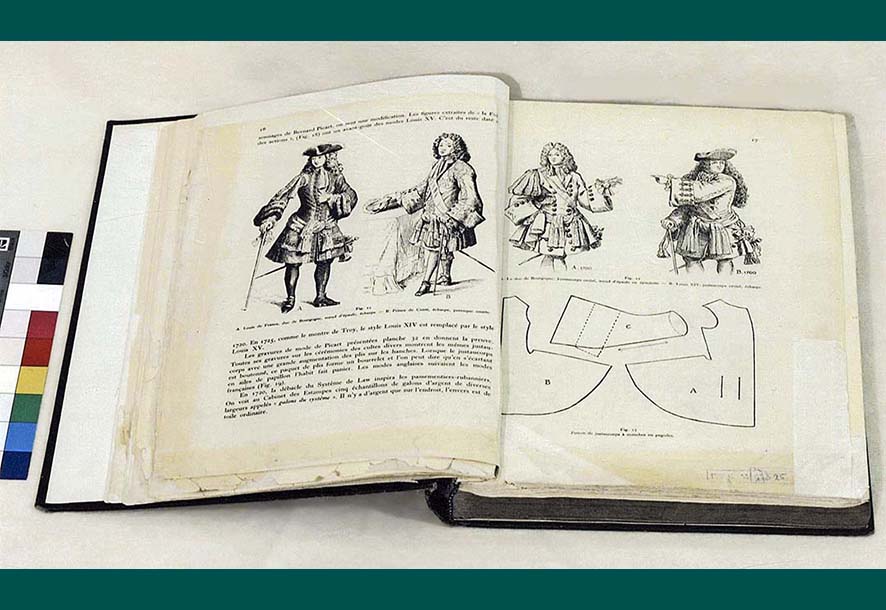 16
sonnages de Bernard Picart, on sent une modification. Les figures extraites de « le
des actions », (Fig. 16) ont un avant-goût des modes Louis XV. C'est du reste daté
Fig. 11
A. Louis de France, duc de Bourgogne, nœud d'épaule, écharpe. — B. Prince de Conti, écharpe, perruque carrée.
1720. En 1725, comme le montre de Troy, le style Louis XIV est remplacé par le style
Louis XV.
Les gravures de mode de Picart présentées planche 32 en donnent la preuve.
Toutes ses gravures sur les cérémonies des cultes divers montrent les mêmes justau-
corps avec une grande augmentation des plis sur les hanches. Lorsque le justaucorps
est boutonné, ce paquet de plis forme un bourrelet et l'on peut dire qu'en s'écartant
en ailes de papillon l'habit fait panier. Les modes anglaises suivaient les modes
françaises (Fig. 19).
En 1720, la débâcle du Système de Law inspira les passementiers-rubanniers.
On voit au Cabinet des Estampes cinq échantillons de galons d'argent de diverses
largeurs appelés « galons du système ». Il n'y a d'argent que sur l'endroit, l'envers est de
toile ordinaire.
A
B
17
A. 1700
B. 1700
Fig. 12
A. Le duc de Bourgogne: Justaucorps croisé, nœud d'épaule en épaulette. — B. Louis XIV, justaucorps croisé, écharpe.
C
B
A
Fig. 13
Patron de justaucorps à manches en pagodes.